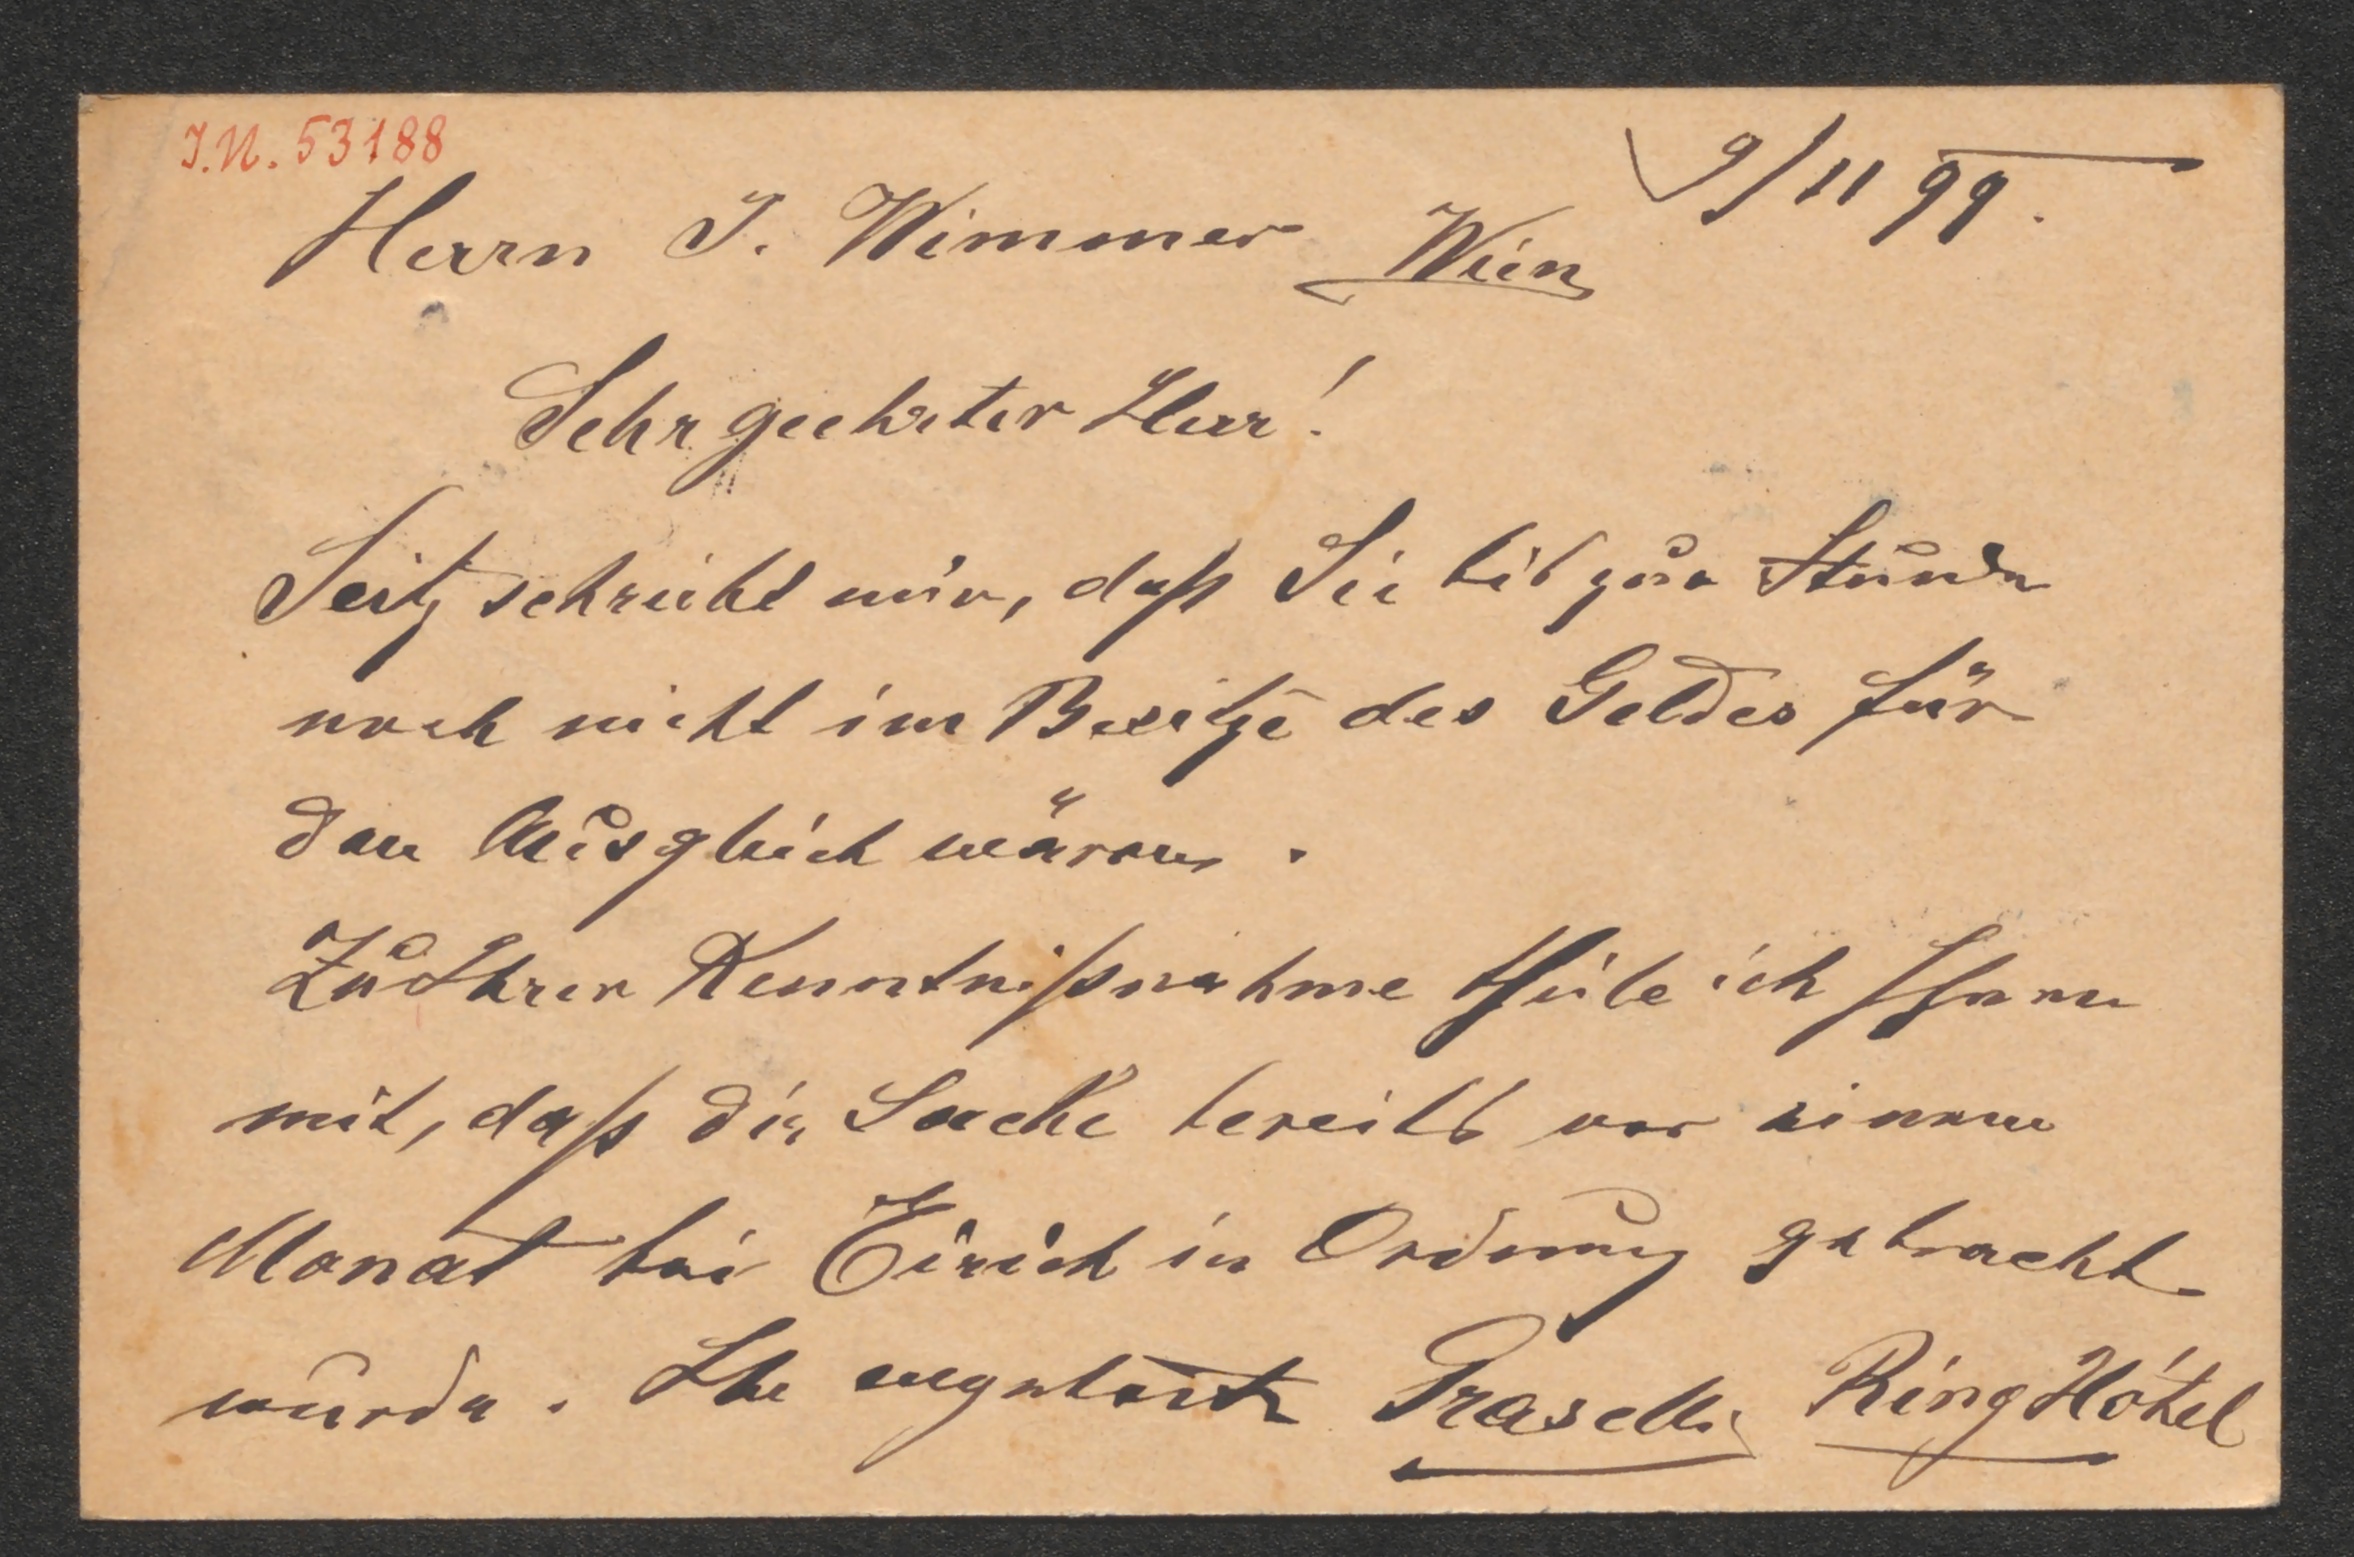 I.N. 53188
9/11 99.
Herrn J. Wimmer Wien
Sehr geehrter Herr!
Seitz schreibt mir, daß Sie bis zur Stunde
noch nicht im Besitze des Geldes für
den Ausgleich wären.
Zu Ihrer Kenntnißnahme theile ich Ihnen
mit, daß die Sache bereits vor einem
Monat bei Eirich in Ordnung gebracht
wurde. Ihr ergebenster Graselli Ring Hôtel